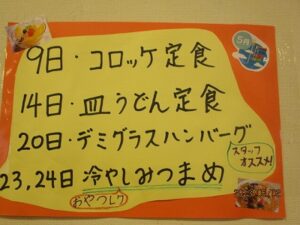 5月
9日・コロッケ定食
14日・皿うどん定食
20日・デミグラスハンバーグ
スタッフ
オススメ!
23,24日 冷やしみつまめ
おやつレク